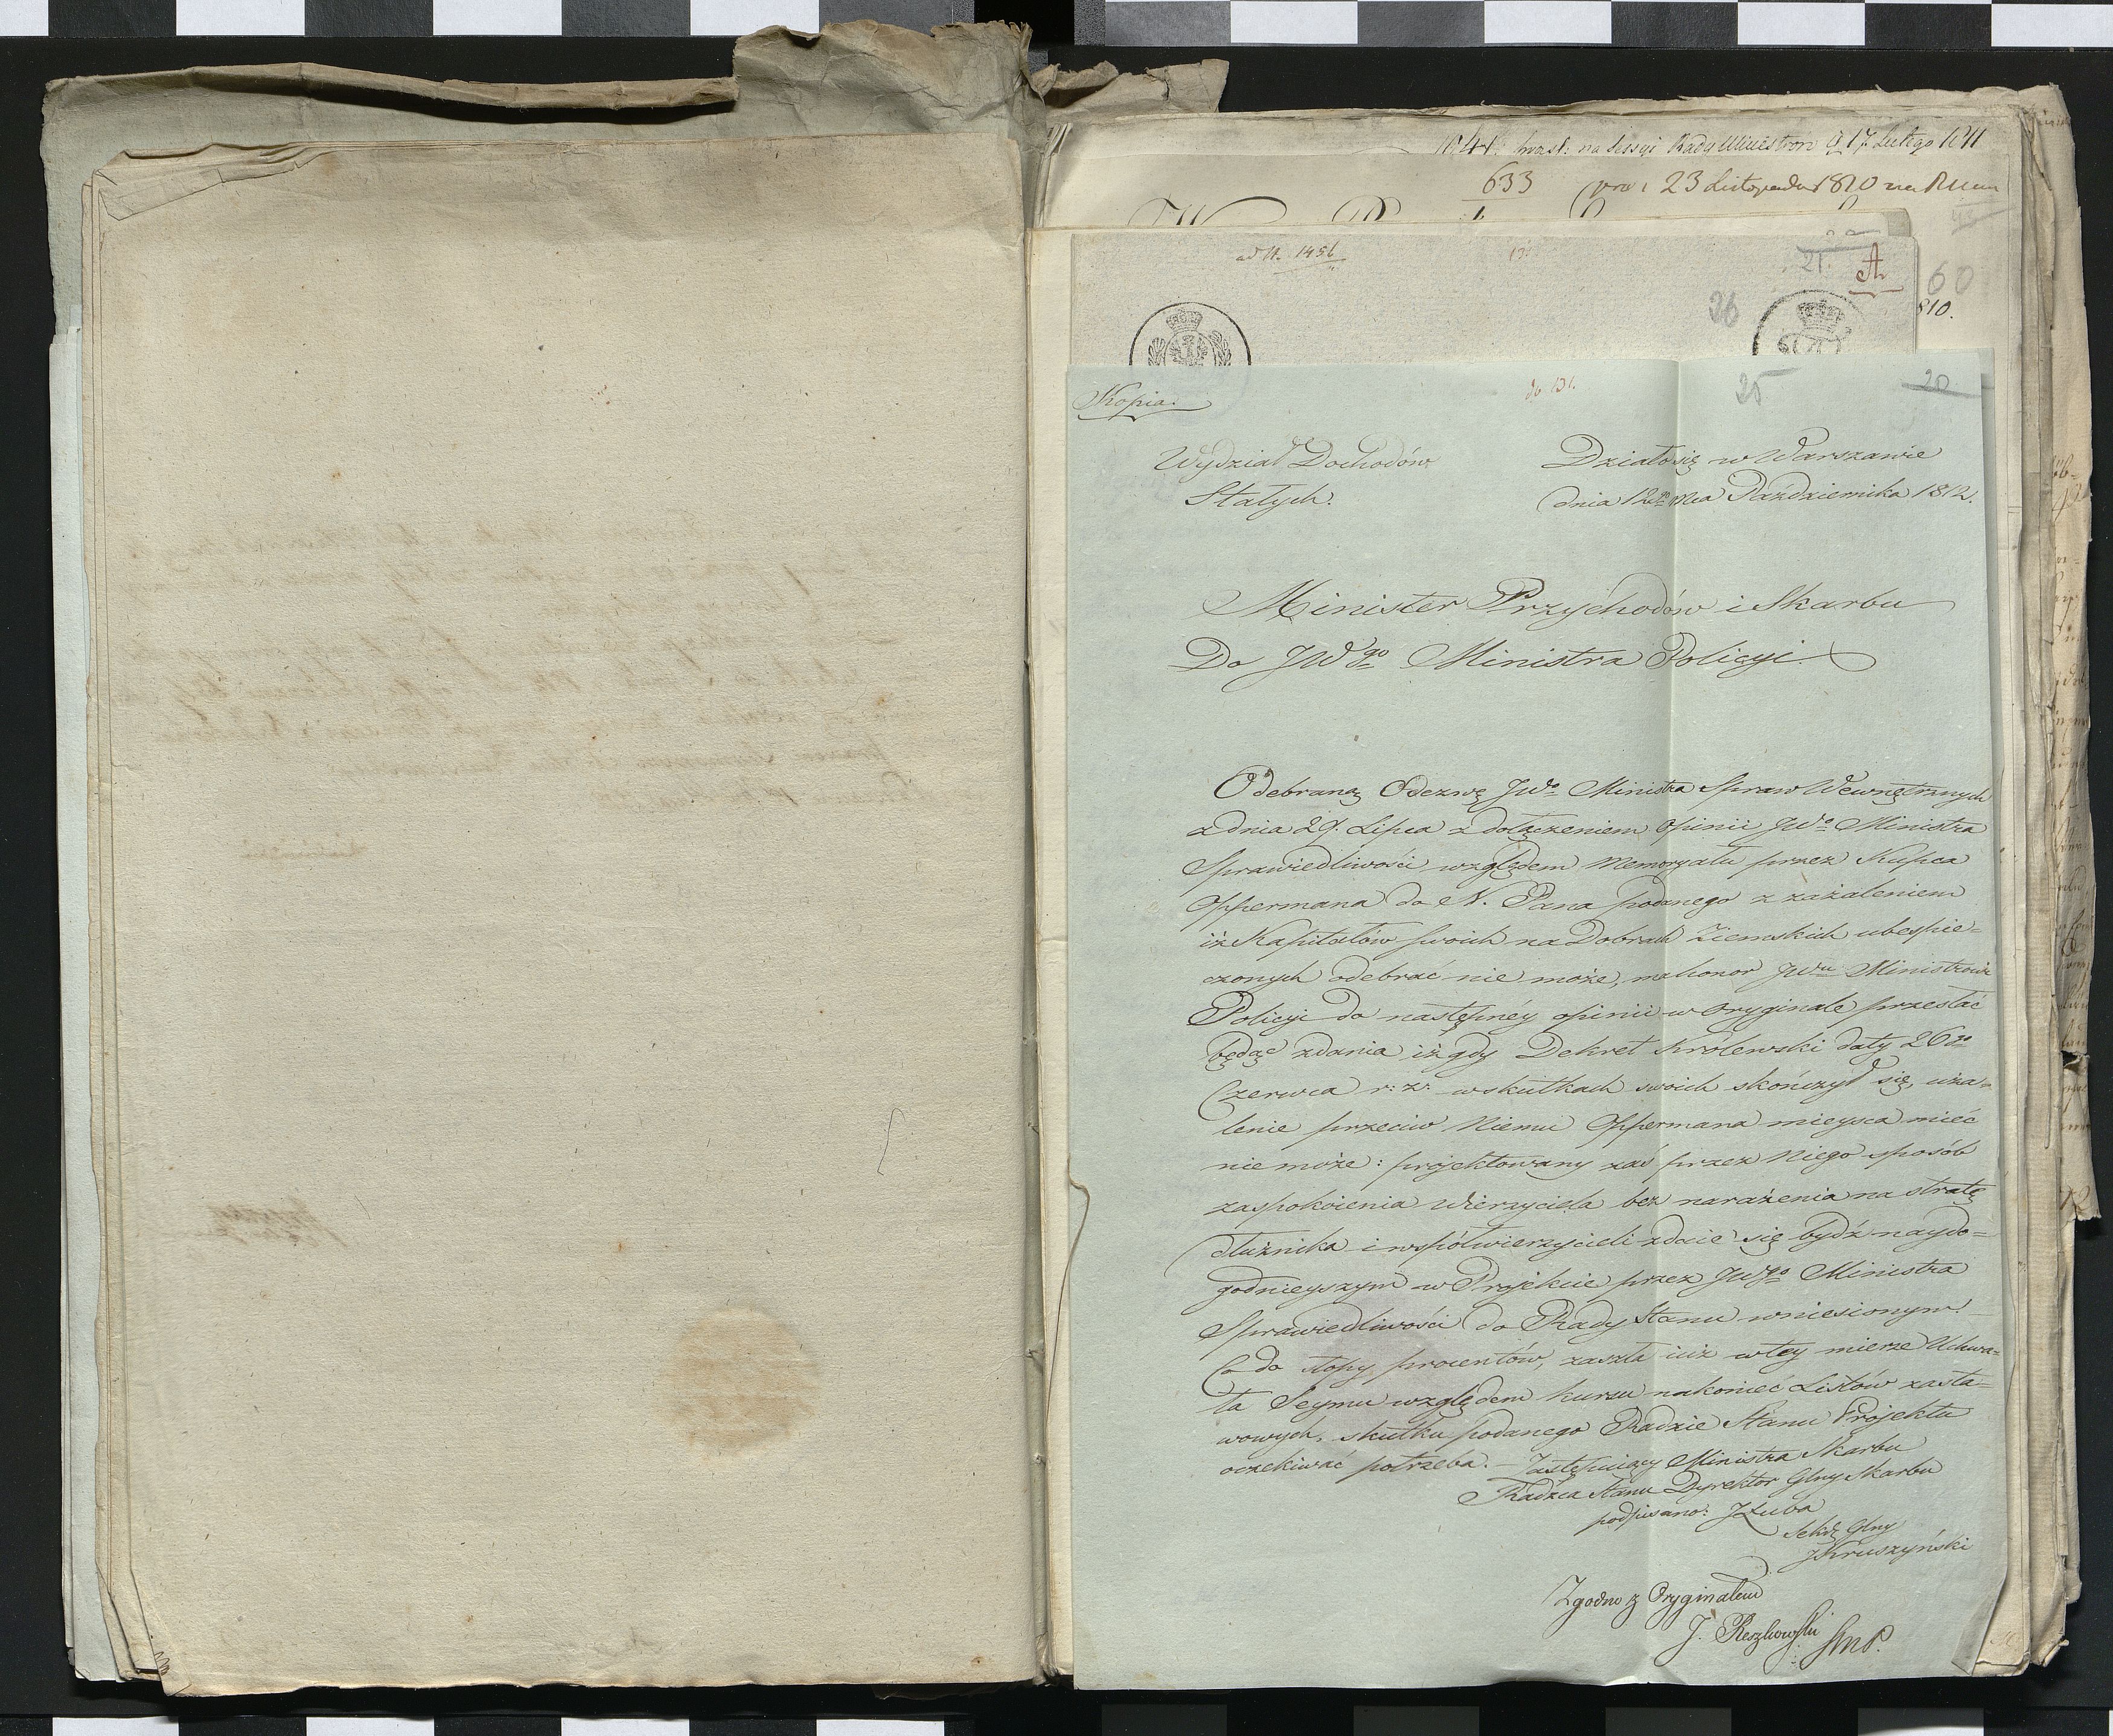 1041. na Sessyi Rady Ministrów d 17 Lutego 1811
633 23 Listopada 1810 na
ad N. 1456
131
21.
A.
60
26
810.
Kopia.
do 131.
25
20
Wydział Dochodów
Stałych.
Działo się w Warszawie
dnia 12go Mca Października 1812.
Minister Przychodów i Skarbu
Do JWgo Ministra Policyi.
Odebraną Odezwę JWo Ministra Spraw Wewnętrznych
z dnia 29. Lipca z dołączeniem Opinii JWo Ministra
Sprawiedliwości względem Memoryału przez Kupca
Oppermana do N. Pana podanego z zażaleniem
iż Kapitałów swoich na Dobrach Ziemskich ubespie=
czonych odebrać nie może, ma honor JWu Ministrowi
Policyi do następnéy opinii w Oryginale przesłać
będąc zdania iż gdy Dekret Królewski daty 26go
Czerwca r: z: w skutkach swoich skończył się, uża=
lenie przeciw Niemu Oppermana mieysca mieć
nie może: projektowany zaś przez Niego sposób
zaspokoienia Wierzyciela bez narażenia na stratę
dłużnika i współwierzycieli zdaie się bydź naydo=
godnieyszym w Projekcie przez JWgo Ministra
Sprawiedliwości do Rady Stanu wniesionym.
Co do stopy procentów, zaszła iuż w tey mierze Uchwa=
ła Seymu względem kursu nakoniec Listów zasta=
wowych, skutku podanego Radzie Stanu Projektu
oczekiwać potrzeba. – Zastępuiący Ministra Skarbu
Radźca Stanu Dyrektor Glny Skarbu
podpisano: JŁuba
Sekrz Glny
JKruszyński
Zgodno z Oryginałem
J. Reszkowski SMP.